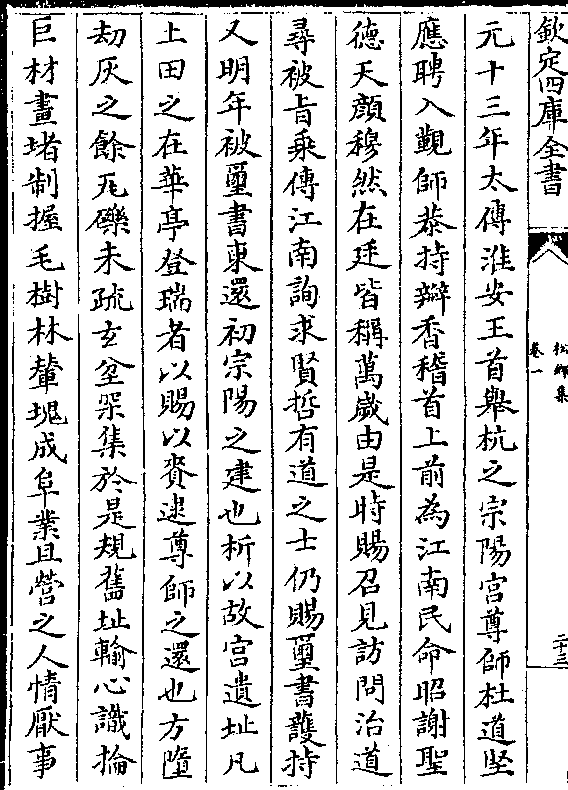 欽定四庫全書
松鄉集
卷一
二十三
元十三年太傅淮安王首舉杭之宗陽宮尊師杜道堅
應聘入覲師恭持瓣香稽首上前為江南民命昭謝聖
德天顔穆然在廷皆稱萬歲由是時賜召見訪問治道
尋被旨乗傳江南詢求賢哲有道之士仍賜璽書護持
又明年被璽書東還初宗陽之建也析以故宫遺址凡
上田之在華亭登瑞者以賜以賚逮尊師之還也方墮
劫灰之餘瓦礫未疏玄坌罙集於是規舊址輸心識掄
巨材畫堵制握毛樹林輦塊成阜業且營之人情厭事